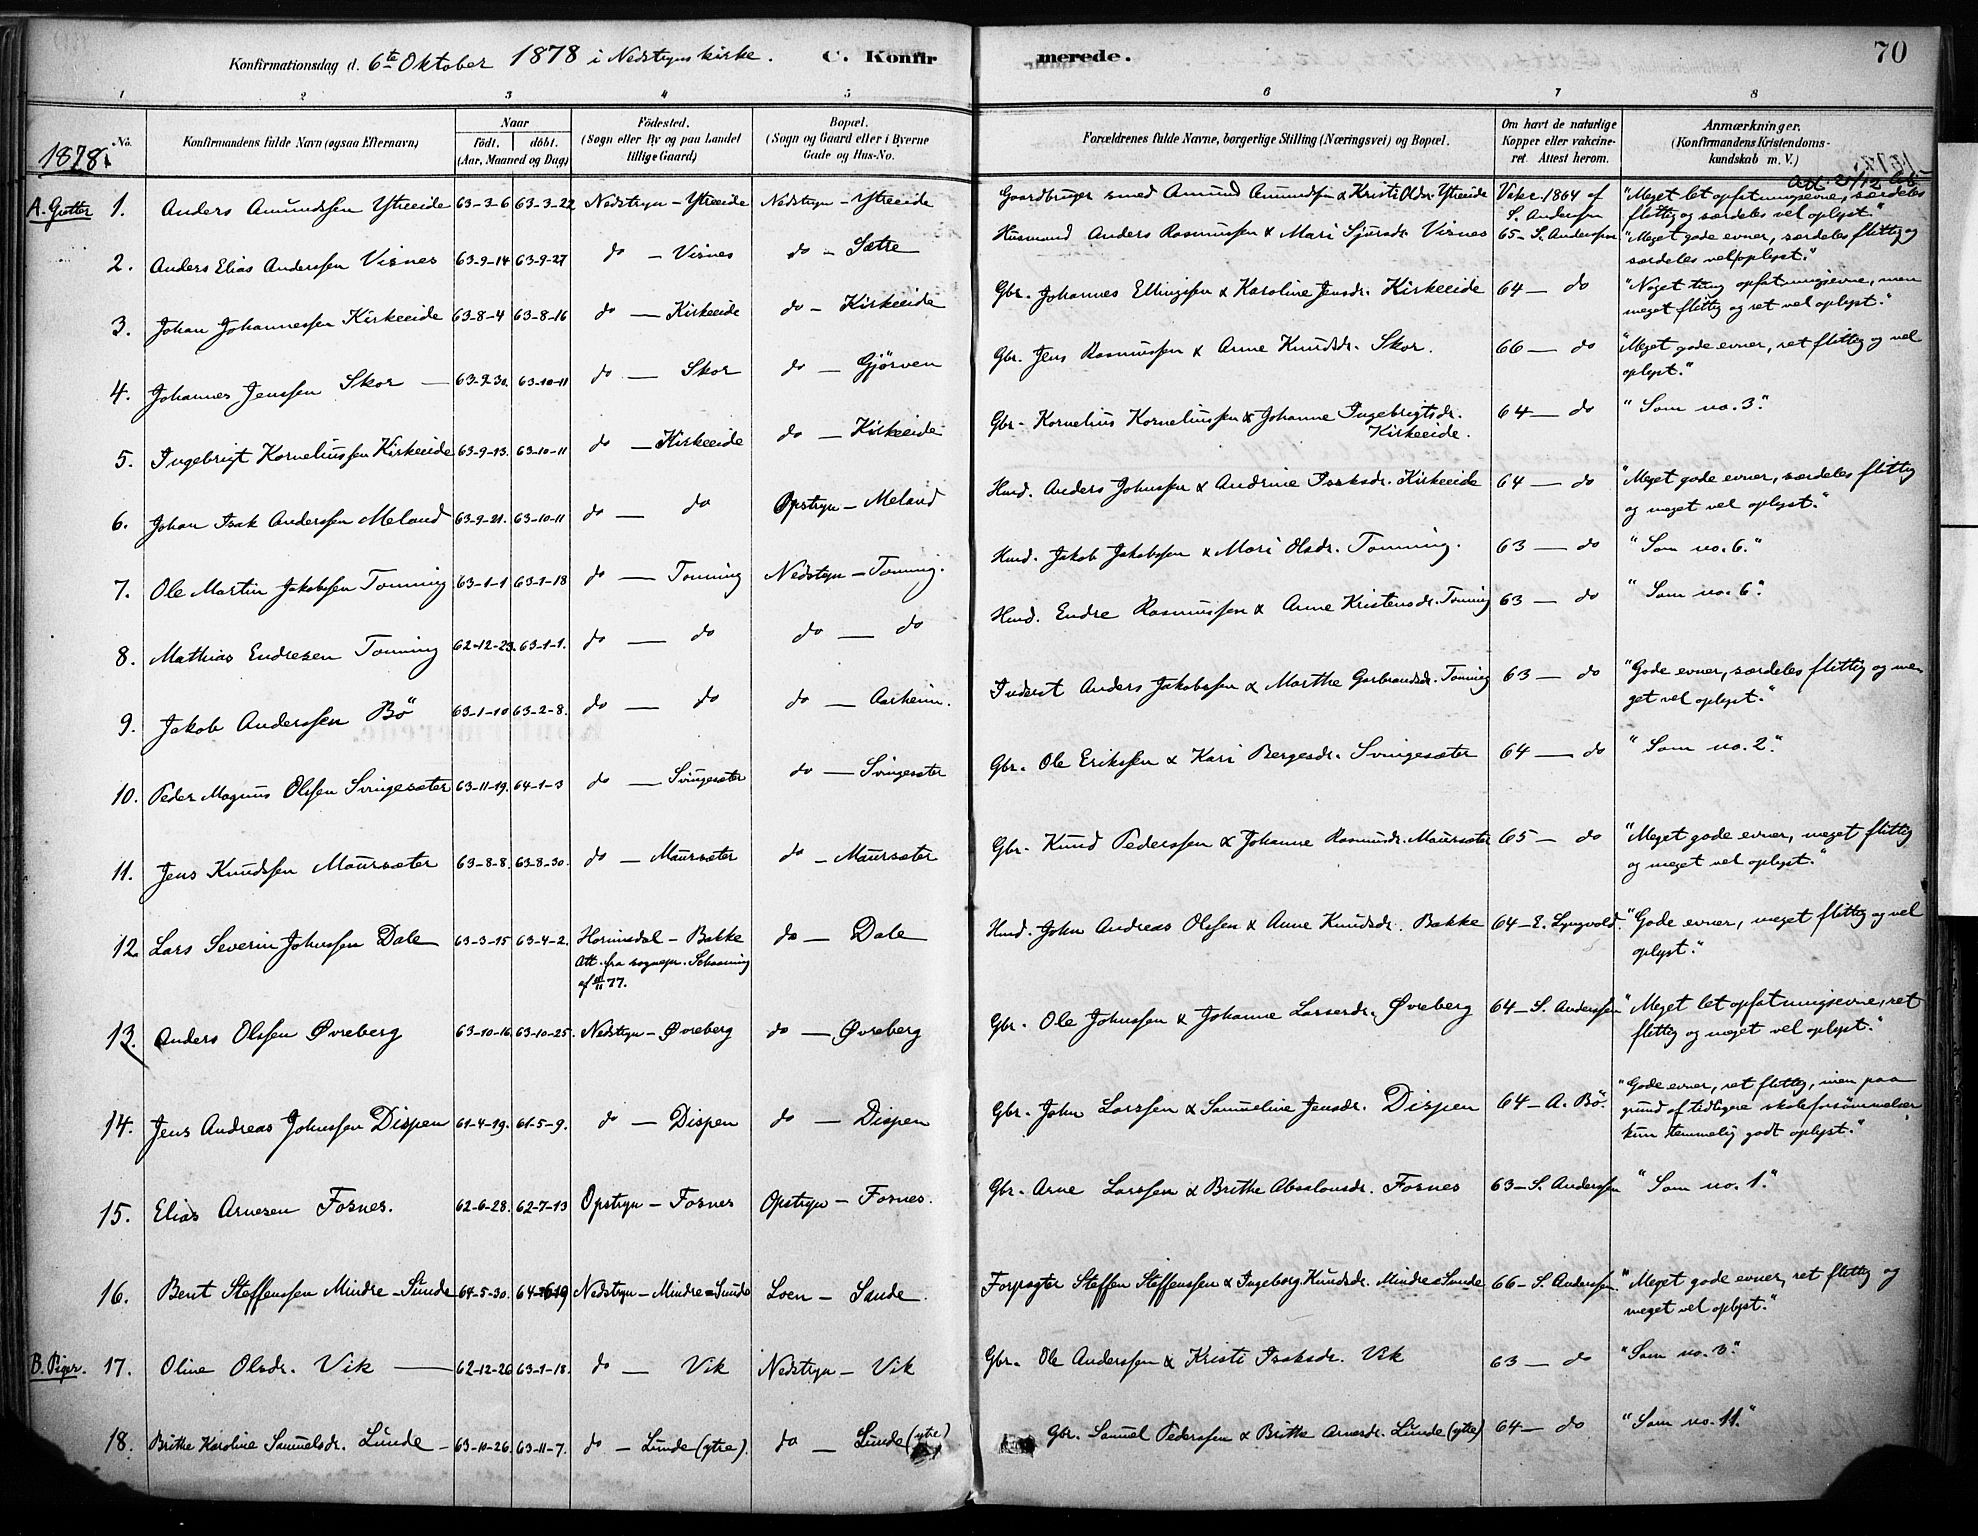 Konfirmationsdag d. 6te Oktober 1878 i Nedstryns kirke. C. Konfirmerede. 70
1 2 3 4 5 6 7 8
1878. No. Konfirmandens fulde Navn (ogsaa Efternavn) Naar Födt. döbt. (Aar, Maaned og Dag) Födested. (Sogn eller By og paa Landet tillige Gaard) Bopæl. (Sogn og Gaard eller i Byerne Gade og Hus-No. Forældrenes fulde Navne, borgerlige Stilling (Næringsvei) og Bopæl. Om havt de naturlige Kopper eller vakcineret. Attest herom. Anmærkninger. (Konfirmandens Kristendomskundskab m. V.)
A. Gutter 1. Anders Amundssen Ytreeide 63-3-6 63-3-22 Nedstryn - Ytreeide Nedstryn - Ytreeide Gaardbruger smed Amund Amundssen & Kristi Olsdr. Ytreeide Vakc. 1864 af S. Anderssen "Meget let opfatningsevne, særdeles flittig og særdeles vel oplyst."
2. Anders Elias Anderssen Visnes 63-9-14 63-9-27 do - Visnes do - Sætre Husmand Anders Rasmussen & Mari Sjursdr. Visnes 65 - S. Anderssen "Meget gode evner, særdeles flittig og særdeles vel oplyst."
3. Johan Johannessen Kirkeeide 63-8-4 63-8-16 do - Kirkeeide do - Kirkeeide Gbr. Johannes Ellingssen & Karoline Jensdr. Kirkeeide 64 - do "Noget tung opfatningsevne, men meget flittig og ret vel oplyst."
4. Johannes Jenssen Skor 63-9-30. 63-10-11 do - Skor do - Gjörven Gbr. Jens Rasmussen & Anne Knudsdr. Skor. 66 - do "Meget gode evner, ret flittig og vel oplyst."
5. Ingebrigt Korneliussen Kirkeeide 63-9-13. 63-10-11 do - Kirkeeide do - Kirkeeide Gbr. Kornelius Korneliussen & Johanne Ingebrigtsdr. Kirkeeide. 64 - do "Som no. 3."
6. Johan Isak Anderssen Meland 63-9-21. 63-10-11 do - do Opstryn - Meland Hmd. Anders Johnssen & Andrine Isaksdr. Kirkeeide 64 - do "Meget gode evner, særdeles flittig og meget vel oplyst."
7. Ole Martin Jakobssen Tonning 63-1-1 63-1-18 do - Tonning Nedstryn - Tonning. Hmd. Jakob Jakobssen & Mari Olsdr. Tonning. 63 - do "Som no. 6."
8. Mathias Endresen Tonning 62-12-23. 63-1-1. do - do do - do Hmd. Endre Rasmussen & Anne Kristensdr. Tonning 63 - do "Som no. 6."
9. Jakob Anderssen Bö 63-1-10 63-2-8. do - do do - Aarheim. Inderst Anders Jakobssen & Marthe Garbrandsdr. Tonning 63 - do "Gode evner, særdeles flittig og meget vel oplyst."
10. Peder Magnus Olssen Svingesæter 63-11-19. 64-1-3 do - Svingesæter do - Svingesæter Gbr. Ole Erikssen & Kari Bergesdr. Svingesæter 64 - do "Som no. 2."
11. Jens Knudssen Maursæter 63-8-8. 63-8-30. do - Maursæter do - Maursæter Gbr. Knud Pederssen & Johanne Rasmusdr. Maursæter 65 - do "Meget gode evner, meget flittig og meget vel oplyst."
12. Lars Severin Johnssen Dale 63-3-15 63-4-2. Hornindal - Bakke Att. fra sognepr. Schaaning af 77. do - Dale Hmd. John Andreas Olssen & Anne Knudsdr. Bakke 64 - E. Lyngvold. "Gode evner, meget flittig og vel oplyst."
13. Anders Olssen Øvreberg 63-10-16. 63-10-25. Nedstryn - Øvreberg do - Øvreberg Gbr. Ole Johnssen & Johanne Larsesdr. Øvreberg 64 - S. Anderssen "Meget let opfatningsevne, ret flittig og meget vel oplyst."
14. Jens Andreas Johnssen Dispen 61-4-19. 61-5-9. do - Dispen do - Dispen Gbr. John Larssen & Samueline Jensdr. Dispen 64 - A. Bö. "Gode evner, ret flittig, men paa grund af tidligere skoleforsömmelser, kun temmelig godt oplyst."
15. Elias Arnesen Fosnes. 62-6-28. 62-7-13 Opstryn - Fosnes Opstryn - Fosnes. Gbr. Arne Larssen & Brithe Absalonsdr. Fosnes 63 - S. Anderssen "Som no. 1."
16. Bent Steffenssen Mindre-Sunde 64-5-30. Nedstryn - Mindre-Sunde Loen - Sande. Forpagter Steffen Steffenssen & Ingeborg Knudsdr. Mindre-Sunde 66 - S. Anderssen. "Meget gode evner, ret flittig og meget vel oplyst."
B. Piger. 17. Oline Olsdr. Vik 62-12-26 63-1-18. do - Vik Nedstryn - Vik Gbr. Ole Anderssen & Kristi Isaksdr. Vik 63 - do "Som no. 3."
18. Brithe Karoline Samuelsdr. Lunde 63-10-26. 63-11-7. do - Lunde (ytre). do - Lunde (ytre) Gbr. Samuel Pederssen & Brithe Arnesdr. Lunde (ytre) 64 - do "Som no. 11."